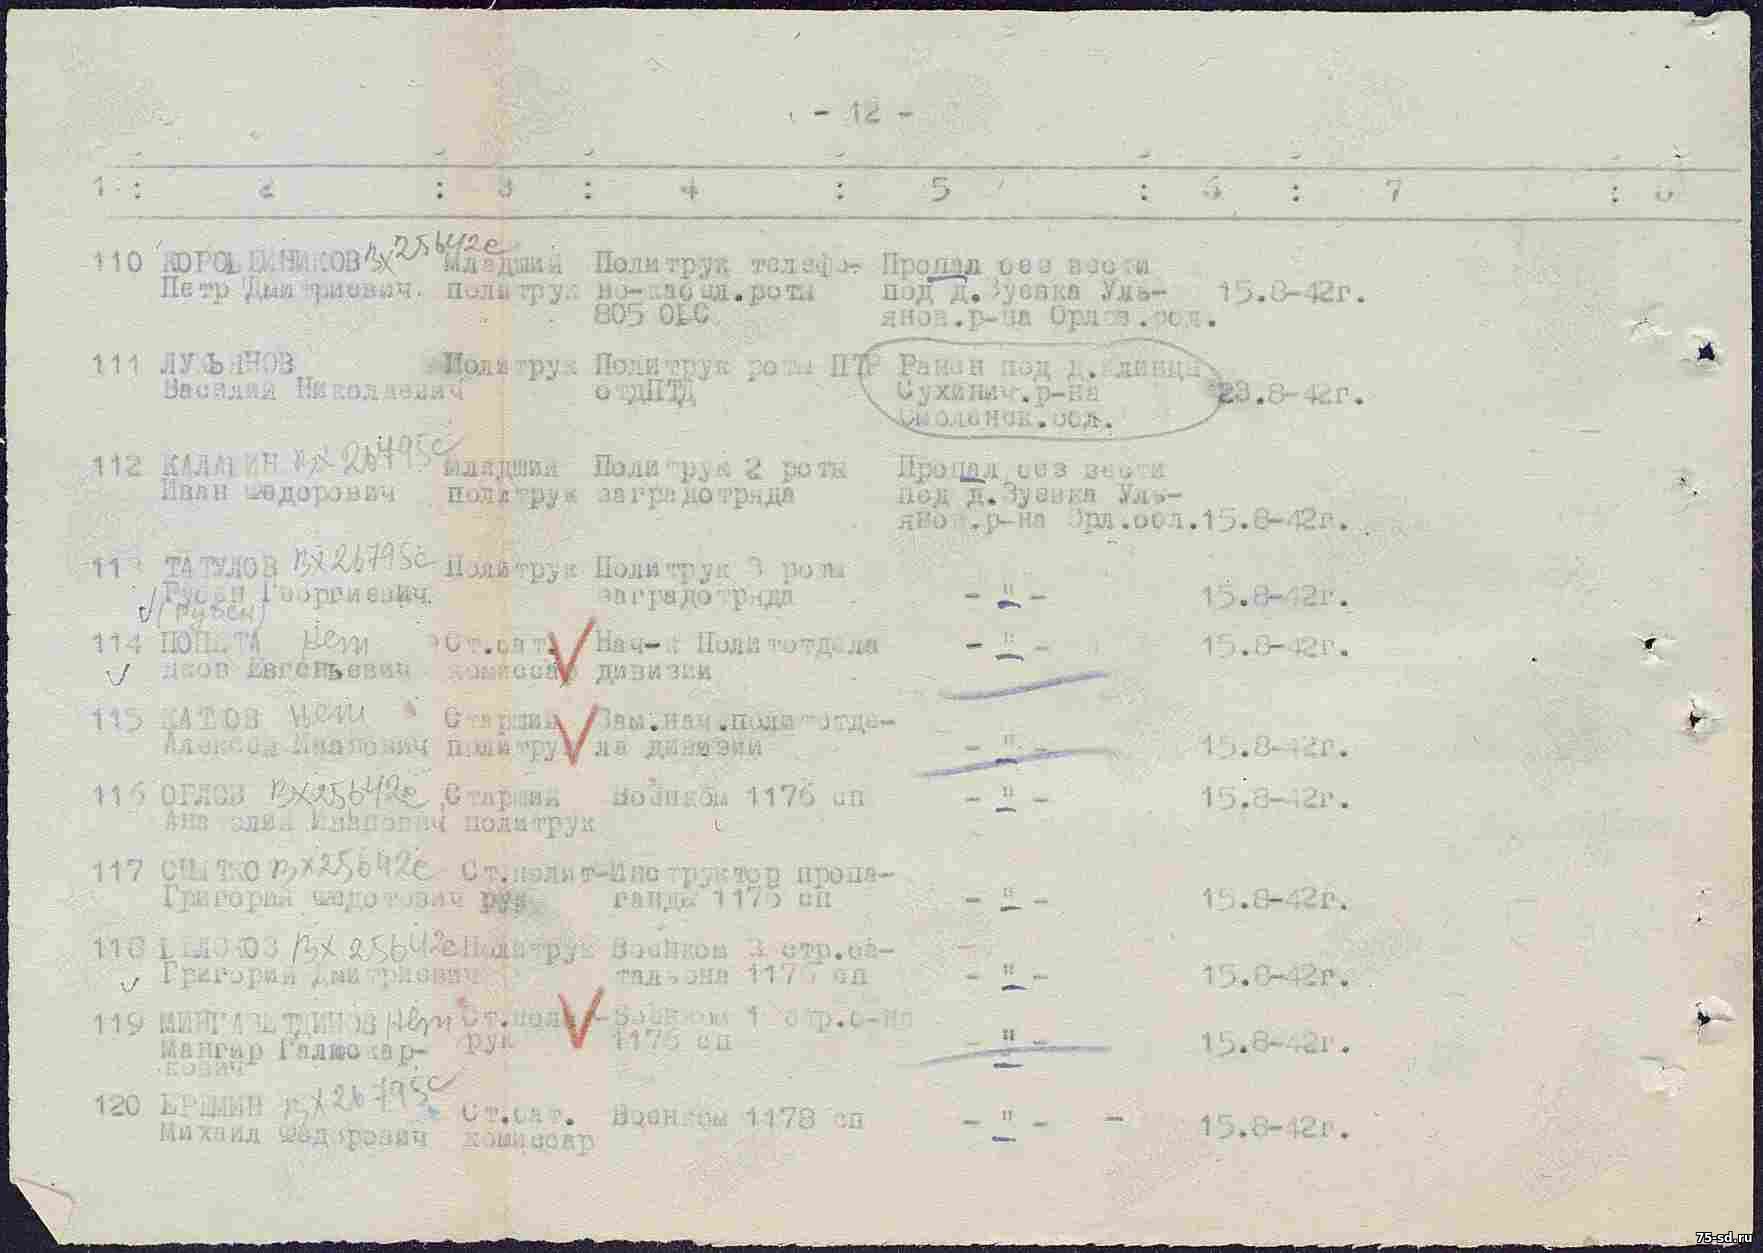 - 12 -
1 : 2 : 3 : 4 : 5 : 6 : 7 : 8
110 вх 25642с Младший Политрук телефо- Пропал без вести
Петр Дмитриевич. политрук но-кабел.роты под д.Зуевка Уль- 15.8-42г.
805 ОБС янов.р-на Орлов.обл.
111 ЛУКЬЯНОВ Политрук Политрук роты ПТР Ранен под д.Клинцы
Василий Николаевич отдПТД Сухинич.р-на 23.8-42г.
Смоленск.обл.
112 вх 26795с Младший Политрук 2 роты Пропал без вести
Иван Федорович политрук заградотряда под д.Зуевка Уль-
янов.р-на Орл.обл.15.8-42г.
113 ТАТУЛОВ вх 26795с Политрук Политрук 3 роты
Рубен Георгиевич. заградотряда - " - 15.8-42г.
(Рубен)
114 нет Ст.бат. Нач-к Политотдела - " - 15.8-42г.
Яков Евгеньевич комиссар дивизии
115 КАТКОВ нет Старший Зам.нач.политотде-
Алексей Иванович политрук ла дивизии - " - 15.8-42г.
116 ОРЛОВ вх 25642с Старший Военком 1176 сп - " - 15.8-42г.
Анатолий Иванович политрук
117 вх 25642с Ст.полит- Инструктор пропа-
Григорий Федотович рук ганды 1176 сп - " - 15.8-42г.
118 вх 25642с Политрук Военком 3 стр.ба-
Григорий Дмитриевич тальона 1176 сп - " - 15.8-42г.
119 нет Ст.полит- Военком 1 стр.б-на
Мангир рук 1176 сп - " - 15.8-42г.
120 ЕРЕМИН вх 26795с Ст.бат. Военком 1178 сп - " - - 15.8-42г.
Михаил Федорович комиссар
75-sd.ru